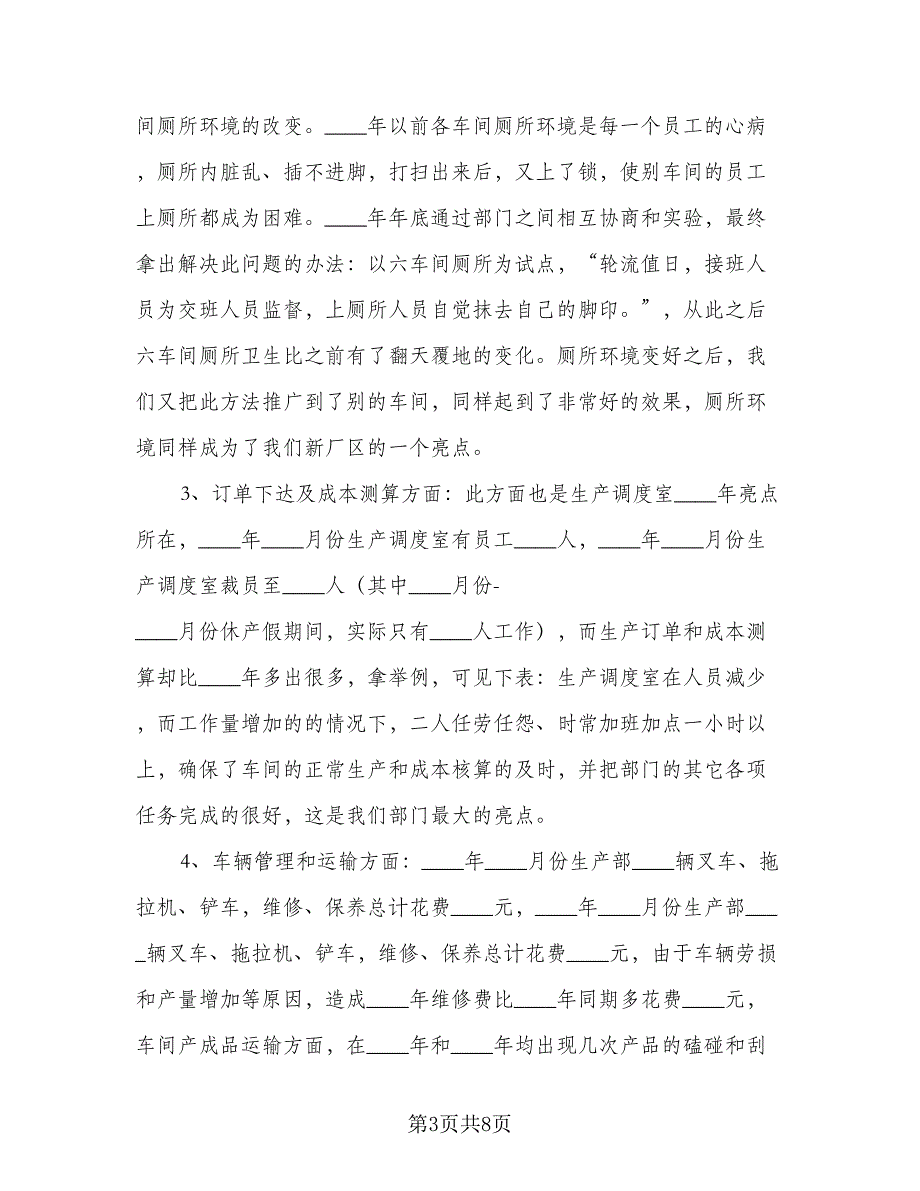 间厕所环境的改变。____年以前各车间厕所环境是每一个员工的心病
，厕所内脏乱、插不进脚，打扫出来后，又上了锁，使别车间的员工
上厕所都成为困难。____年年底通过部门之间相互协商和实验，最终
拿出解决此问题的办法：以六车间厕所为试点，“轮流值日，接班人
员为交班人员监督，上厕所人员自觉抹去自己的脚印。”，从此之后
六车间厕所卫生比之前有了翻天覆地的变化。厕所环境变好之后，我
们又把此方法推广到了别的车间，同样起到了非常好的效果，厕所环
境同样成为了我们新厂区的一个亮点。
3、订单下达及成本测算方面：此方面也是生产调度室____年亮点
所在，____年____月份生产调度室有员工____人，____年____月份生
产调度室裁员至____人（其中____月份-
____月份休产假期间，实际只有____人工作），而生产订单和成本测
算却比____年多出很多，拿举例，可见下表：生产调度室在人员减少
，而工作量增加的的情况下，二人任劳任怨、时常加班加点一小时以
上，确保了车间的正常生产和成本核算的及时，并把部门的其它各项
任务完成的很好，这是我们部门最大的亮点。
4、车辆管理和运输方面：____年____月份生产部____辆叉车、拖
拉机、铲车，维修、保养总计花费____元，____年____月份生产部___
_辆叉车、拖拉机、铲车，维修、保养总计花费____元，由于车辆劳损
和产量增加等原因，造成____年维修费比____年同期多花费____元，
车间产成品运输方面，在____年和____年均出现几次产品的磕碰和刮
第3页共8页